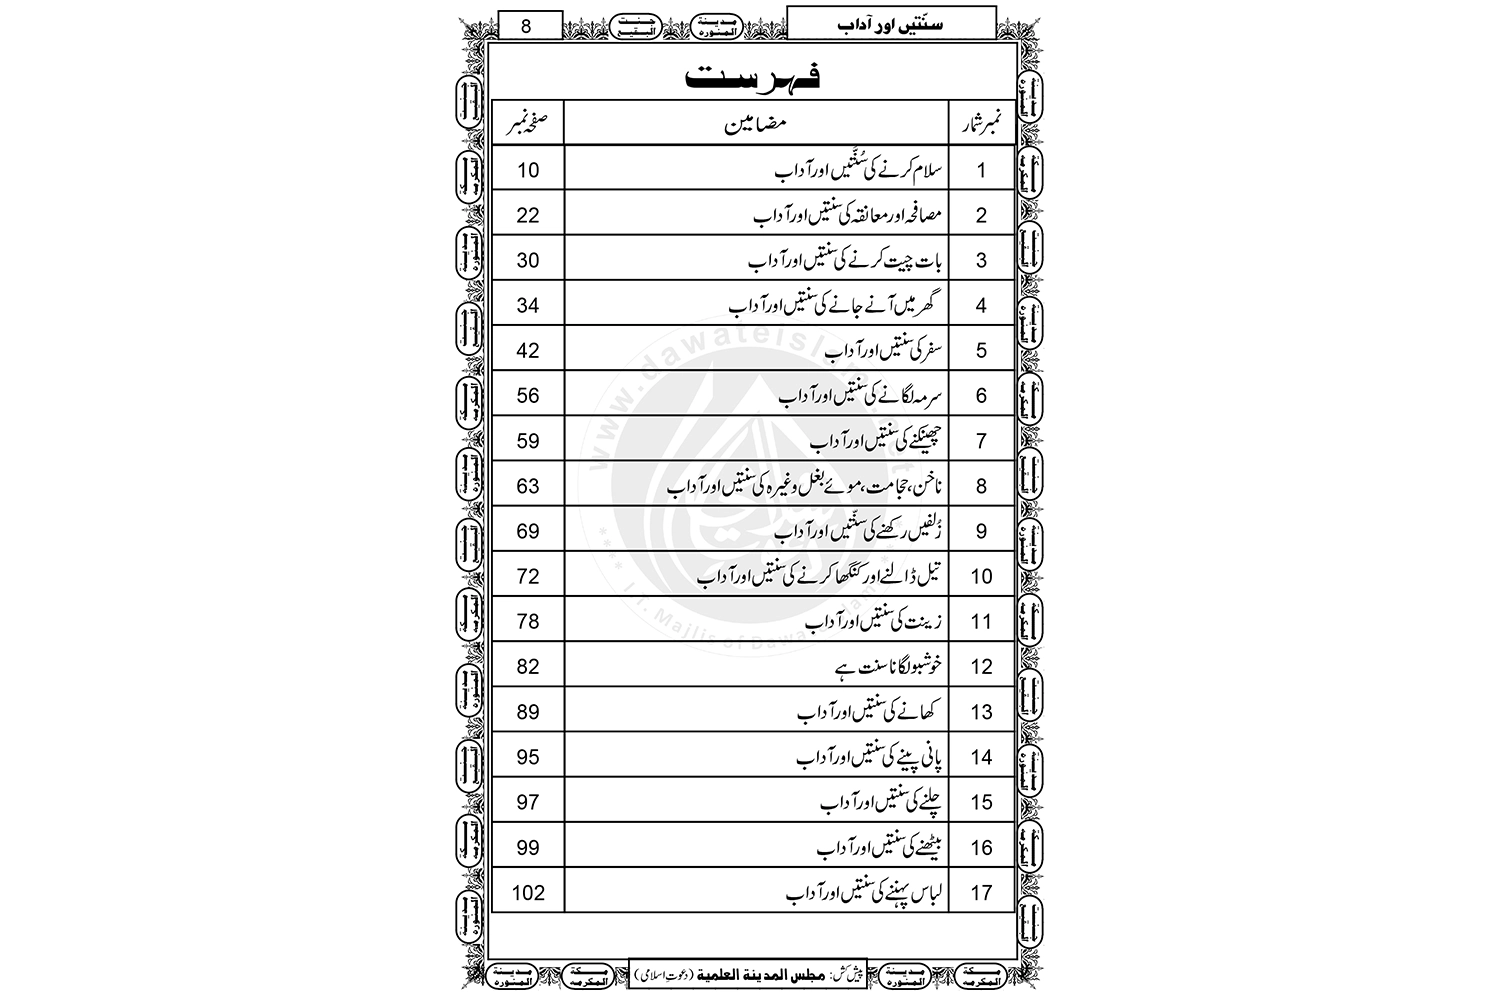 سنّتیں اور آداب
مدینة المنوره
جنت البقیع
8
فہرست
نمبر شمار مضامین صفحہ نمبر
1 سلام کرنے کی سُنَّتیں اور آداب 10
2 مصافحہ اور معانقہ کی سنتیں اور آداب 22
3 بات چیت کرنے کی سنتیں اور آداب 30
4 گھر میں آنے جانے کی سنتیں اور آداب 34
5 سفر کی سنتیں اور آداب 42
6 سرمہ لگانے کی سنتیں اور آداب 56
7 چھینکنے کی سنتیں اور آداب 59
8 ناخن، حجامت، موئے بغل وغیرہ کی سنتیں اور آداب 63
9 زُلفیں رکھنے کی سنّتیں اور آداب 69
10 تیل ڈالنے اور کنگھا کرنے کی سنتیں اور آداب 72
11 زینت کی سنتیں اور آداب 78
12 خوشبو لگانا سنت ہے 82
13 کھانے کی سنتیں اور آداب 89
14 پانی پینے کی سنتیں اور آداب 95
15 چلنے کی سنتیں اور آداب 97
16 بیٹھنے کی سنتیں اور آداب 99
17 لباس پہننے کی سنتیں اور آداب 102
www.dawateislami.net
I.T. Majlis of Dawateislami
مكة المكرمه
مدینة المنوره
پیش کش: مجلس المدينة العلمية (دعوتِ اسلامی)
مكة المكرمه
مدینة المنوره